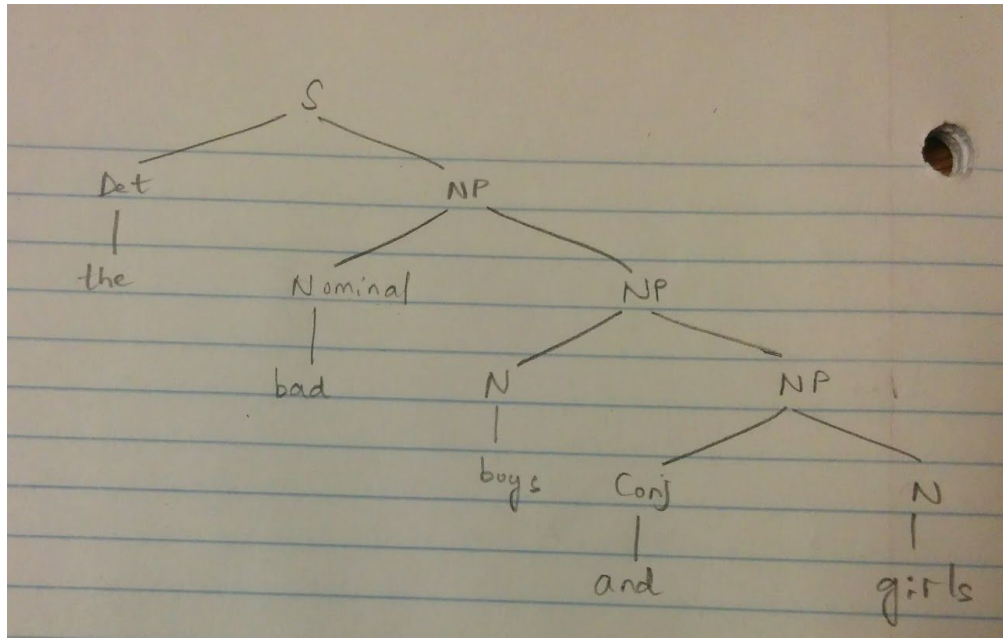 S
Det NP
the Nominal NP
bad N NP
boys Conj N
and girls